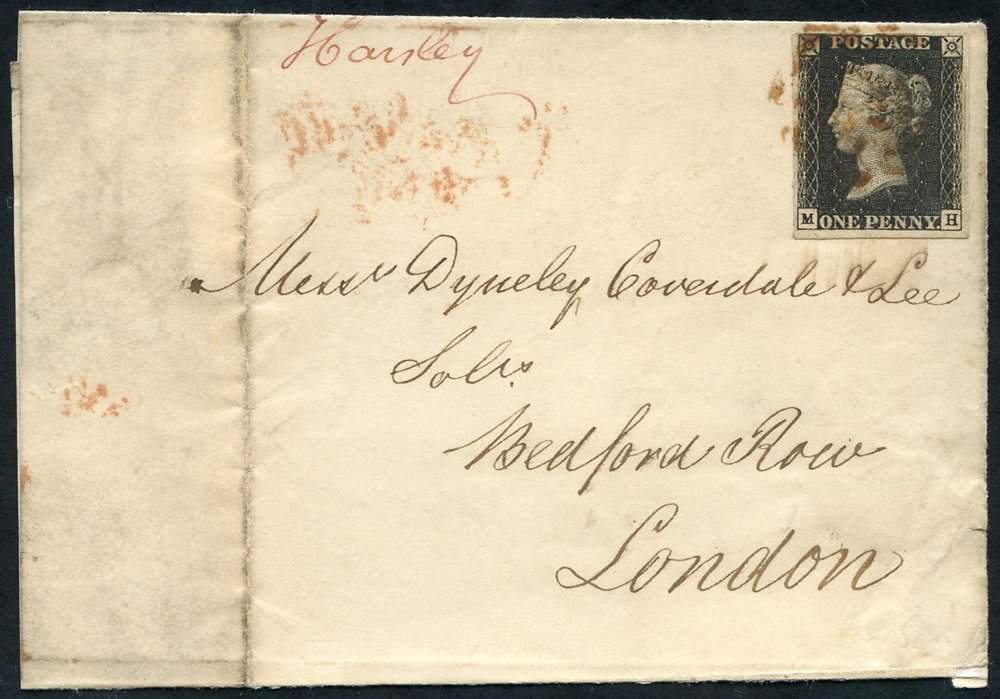 Harley
POSTAGE
M ONE PENNY. H
Messrs Dyneley Coverdale & Lee
Solrs
Bedford Row
London